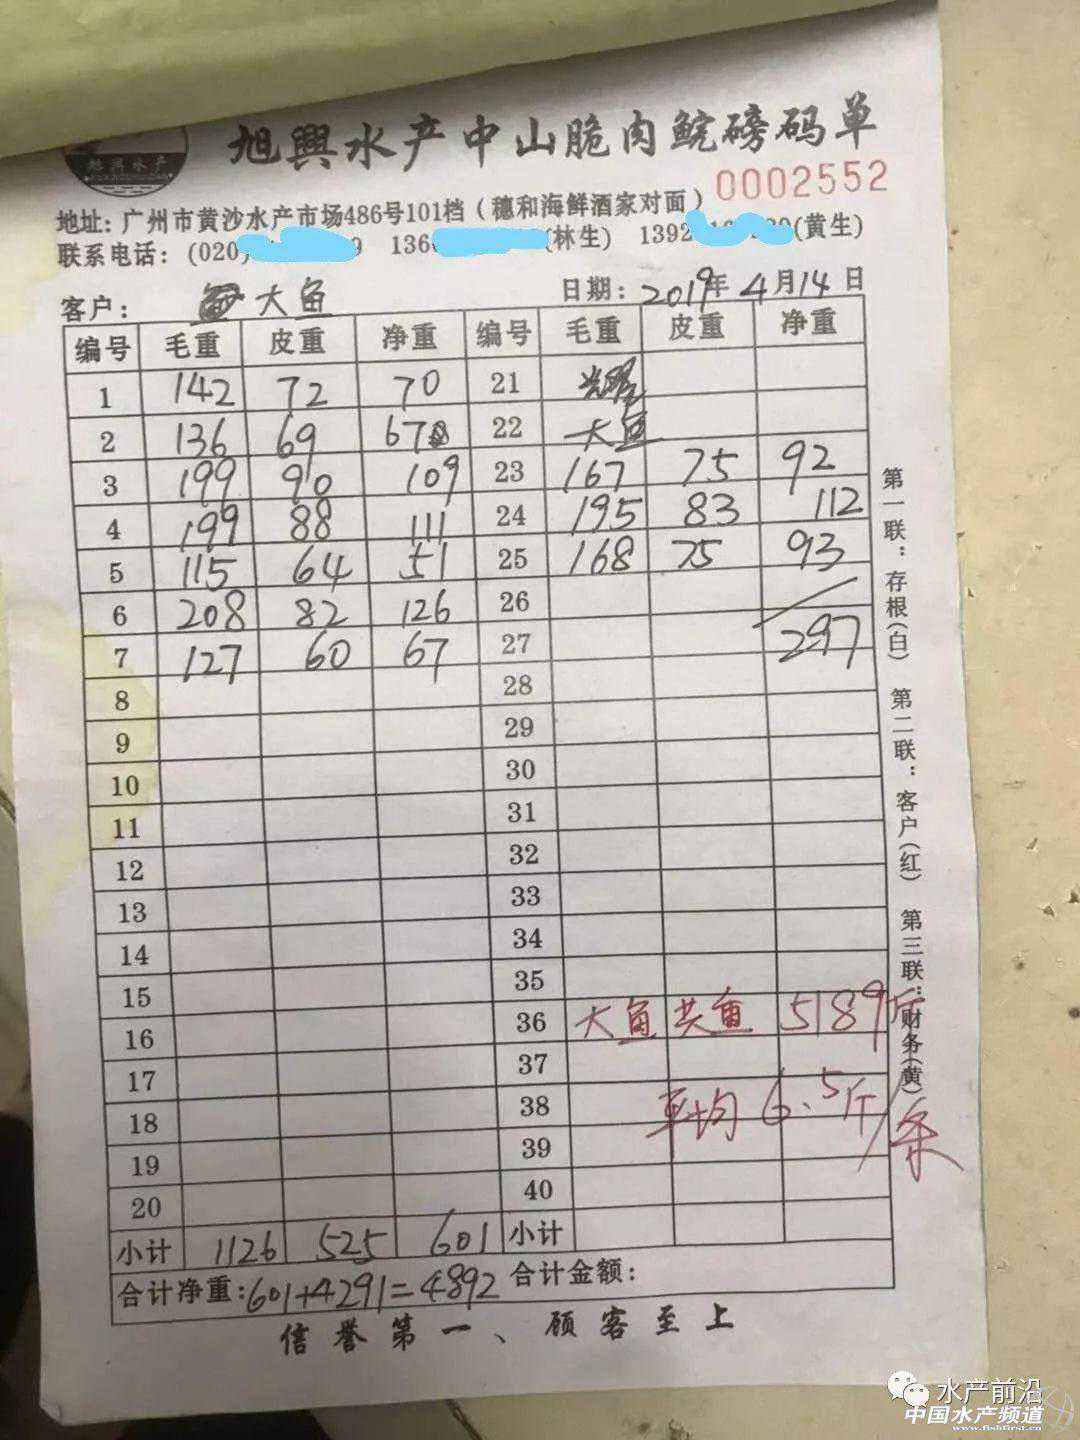 旭興水产
旭興水产中山脆肉鲩磅码单
0002552
地址: 广州市黄沙水产市场486号101档 (穗和海鲜酒家对面)
联系电话: (020) 9 136 (林生) 1392 (黄生)
客户: 大鱼 日期: 2019年 4月14日
编号 毛重 皮重 净重 编号 毛重 皮重 净重
1 142 72 70 21
2 136 69 67 22 大鱼
3 199 90 109 23 167 75 92
4 199 88 111 24 195 83 112
5 115 64 51 25 168 75 93
6 208 82 126 26
7 127 60 67 27 297
8 28
9 29
10 30
11 31
12 32
13 33
14 34
15 35
16 36 大鱼 共鱼 5189斤
17 37
18 38 平均 6.5斤/条
19 39
20 40
小计 1126 525 601 小计
合计净重: 601+4291=4892 合计金额:
信誉第一、顾客至上
第一联: 存根(白) 第二联: 客户(红) 第三联: 财务(黄)
水产前沿
中国水产频道
www.fishfirst.cn